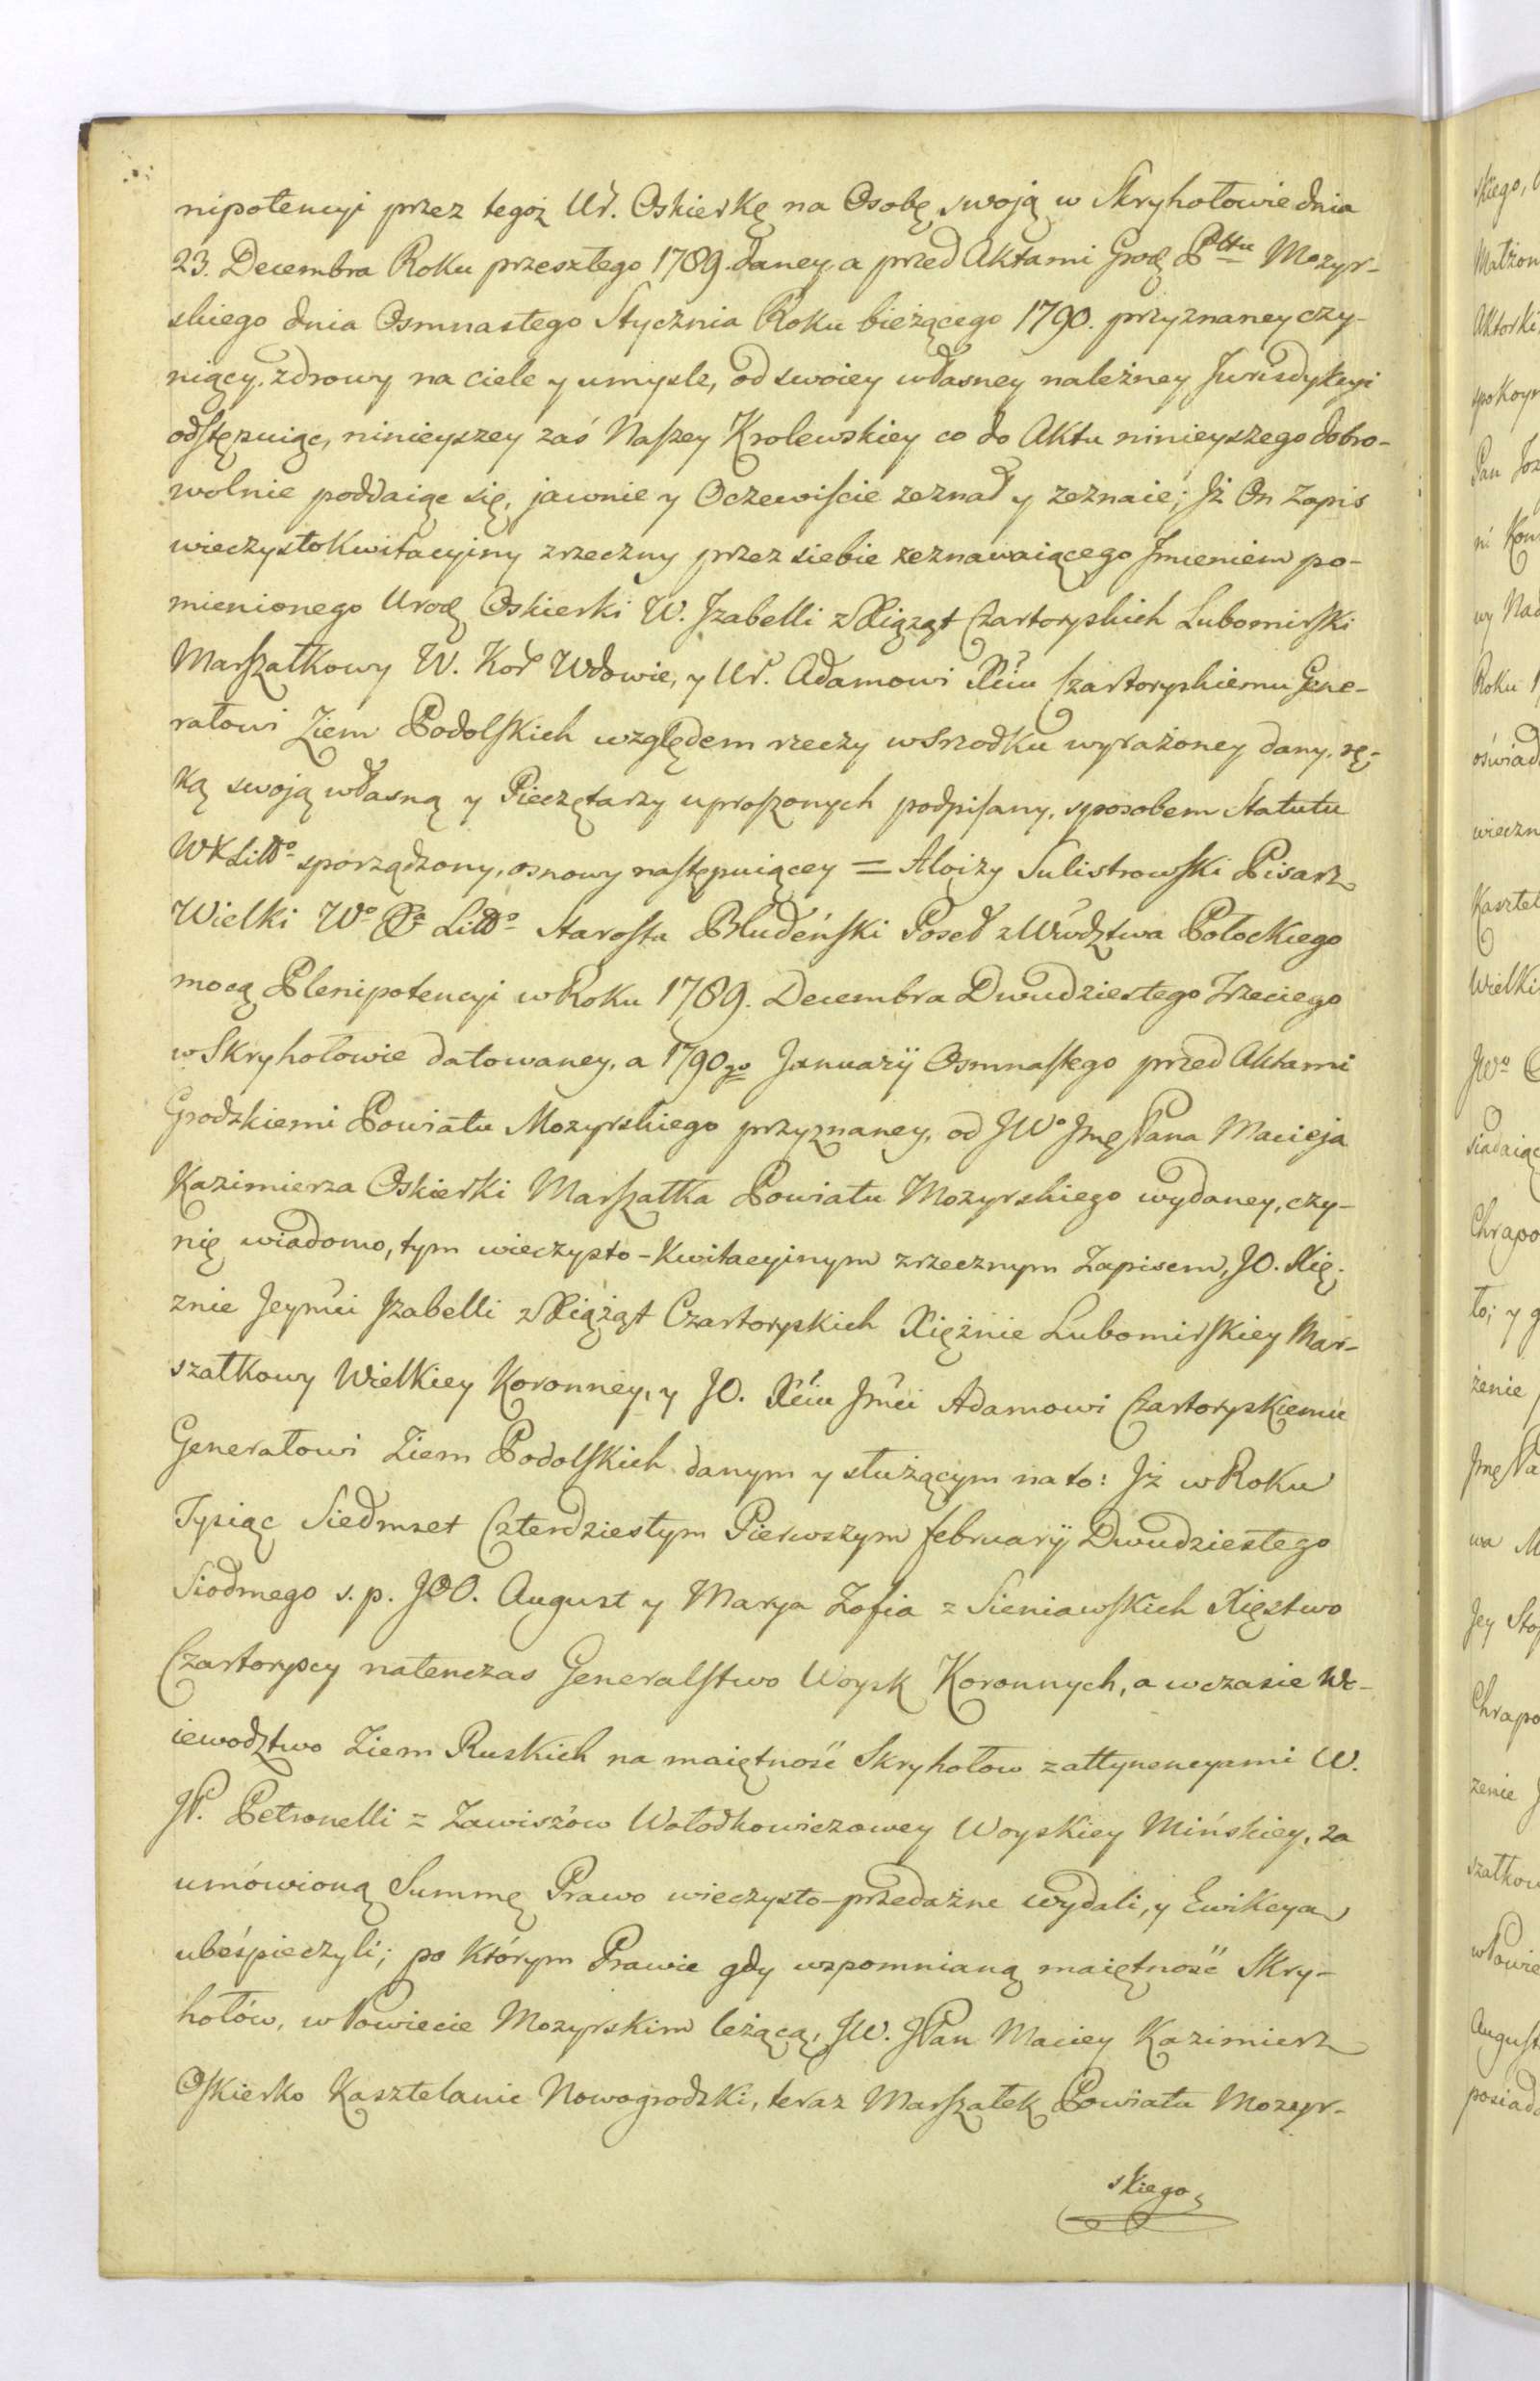 nipotencyi przez tegoż Ur. Oskierkę na Osobę swoją w Skryhołowie dnia
23. Decembra Roku przeszłego 1789. daney, a przed Aktami Grodz Pttu Mozyr-
skiego dnia Osmnastego Stycznia Roku bieżącego 1790. przyznaney czy-
niący, zdrowy na ciele y umyśle, od swoiey własney należney Jurisdykcyi
odstępuiąc, ninieyszey zaś Naszey Krolewskiey co do Aktu ninieyszego dobro-
wolnie poddaiąc się, jawnie y Oczewiście zeznał y zeznaie; Jż On Zapis
wieczysto Kwitacyjny zrzeczny przez siebie zeznawaiącego Jmieniem po-
mienionego Urodz Oskierki W. Jzabelli z Xiążąt Czartoryskich Lubomirski
Marszałkowy W. Kor Wdowie, y Ur. Adamowi Xciu Czartoryskiemu Gene-
rałowi Ziem Podolskich względem rzeczy w srzodku wyrażoney dany, rę-
ką swoją własną y Pieczętarzy uproszonych podpisany, sposobem Statutu
W X Litto sporządzony, osnowy następuiącey = Aloizy Sulistrowski Pisarz
Wielki Wo Xa Litto Starosta Błudeński Poseł z Wwdztwa Połockiego
mocą Plenipotencyi w Roku 1789. Decembra Dwudziestego Trzeciego
w Skryhołowie datowaney, a 1790go Januarij Osmnastego przed Aktami
Grodzkiemi Powiatu Mozyrskiego przyznaney, od JWo Jmę Pana Macieja
Kazimierza Oskierki Marszałka Powiatu Mozyrskiego wydaney, czy-
nię wiadomo, tym wieczysto-Kwitacyjnym zrzecznym Zapisem, JO. Xię-
żnie Jeymci Jzabelli z Xiążąt Czartoryskich Xiężnie Lubomirskiey Mar-
szałkowy Wielkiey Koronney, y JO. Xciu Jmci Adamowi Czartoryskiemu
Generałowi Ziem Podolskich danym y służącym na to: Jż w Roku
Tysiąc Siedmset Czterdziestym Pierwszym februarij Dwudziestego
Siodmego s. p. JOO. August y Marya Zofia z Sieniawskich Xięstwo
Czartoryscy natenczas Generalstwo Woysk Koronnych, a w czasie Wo-
iewodztwo Ziem Ruskich na maiętność Skryhołow z attynencyami W.
JP. Petronelli z Zawiszów Wołodkowiczowey Woyskiey Mińskiey, za
umówioną Summę Prawo wieczysto-przedażne wydali, y Ewikcyą
ubeśpieczyli; po którym Prawie gdy wspomnianą maiętność Skry-
hołów, w Powiecie Mozyrskim leżącą, JW. JPan Maciey Kazimierz
Oskierko Kasztelanic Nowogrodzki, teraz Marszałek Powiatu Mozyr-
skiego